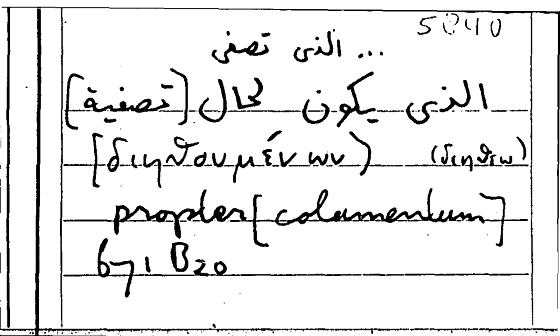 5040
... الذى تصفى
الذى يكون لحال [تصفية]
[διηθουμένων) (διηθέω)
propter [colamentum]
671 B20